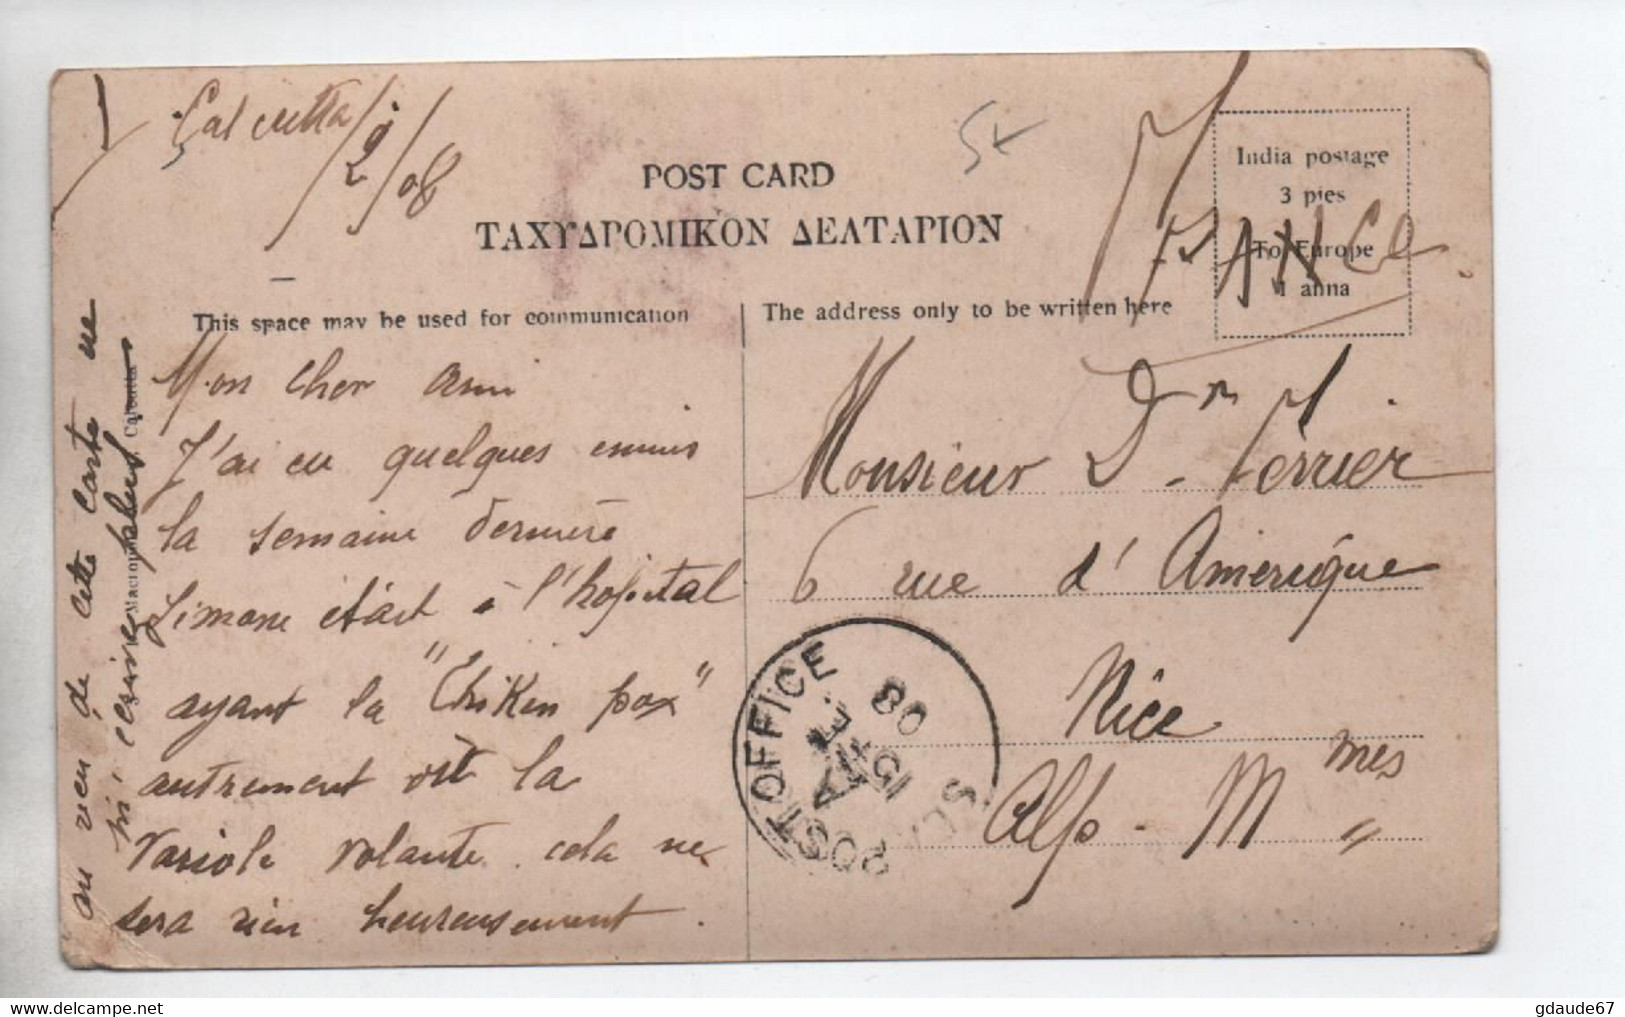 Calcutta/2/08
POST CARD
ΤΑΧΥΔΡΟΜΙΚΟΝ ΔΕΛΤΑΡΙΟΝ
India postage
3 pies
To Europe
1 anna
FRANCE
This space may be used for communication
The address only to be written here
Mon cher ami
J'ai eu quelques ennuis
la semaine dernière
Simone était à l'hopital
ayant la "Chiken pox"
autrement dit la
variole volante cela ne
sera rien heureusement.
au reçu de cette carte ne
m'écrivez plus
Calcutta
Monsieur Dr Ferrier
6 rue d'Amérique
Nice
Alp. Mmes
POST OFFICE
15
08
gdaude67